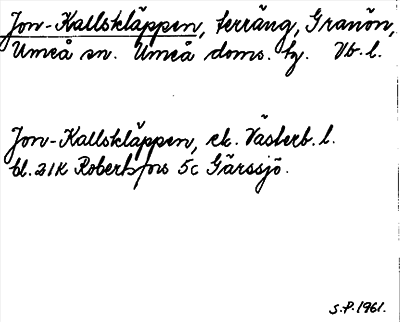 Jon-Kallskläppen, terräng, Granön,
Umeå sn. Umeå doms. hg. Vb. l.
Jon-Kallskläppen, ek. Västerb. l.
bl. 21K Robertsfors 5c Gärssjö.
S.P. 1961.